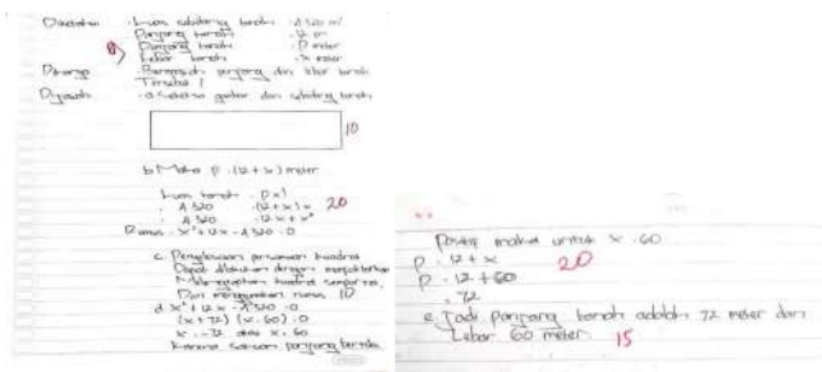 Diketahui : Luas sebidang tanah : 4320 m²
Panjang tanah : 12 m
8) Panjang tanah : P meter
Lebar tanah : x meter
Ditanya : panjang dan lebar tanah
Tersebut ?
Dijawab : a. gambar dari sebidang tanah
10
b. Maka p : (12 + x) meter
Luas tanah : p x l
4320 : (12 + x) x 20
4320 : 12x + x²
x² + 12x - 4320 = 0
c. Penyelesaian persamaan kuadrat
Dapat dilakukan dengan memfaktorkan
Melengkapkan kuadrat sempurna,
Dan menggunakan rumus 10
d. x² + 12x - 4320 = 0
(x + 72) (x - 60) = 0
x = -72 atau x = 60
Karena satuan panjang bernilai
Positif maka untuk x = 60
P = 12 + x 20
P = 12 + 60
= 72
e. Jadi panjang tanah adalah 72 meter dan
Lebar 60 meter 15